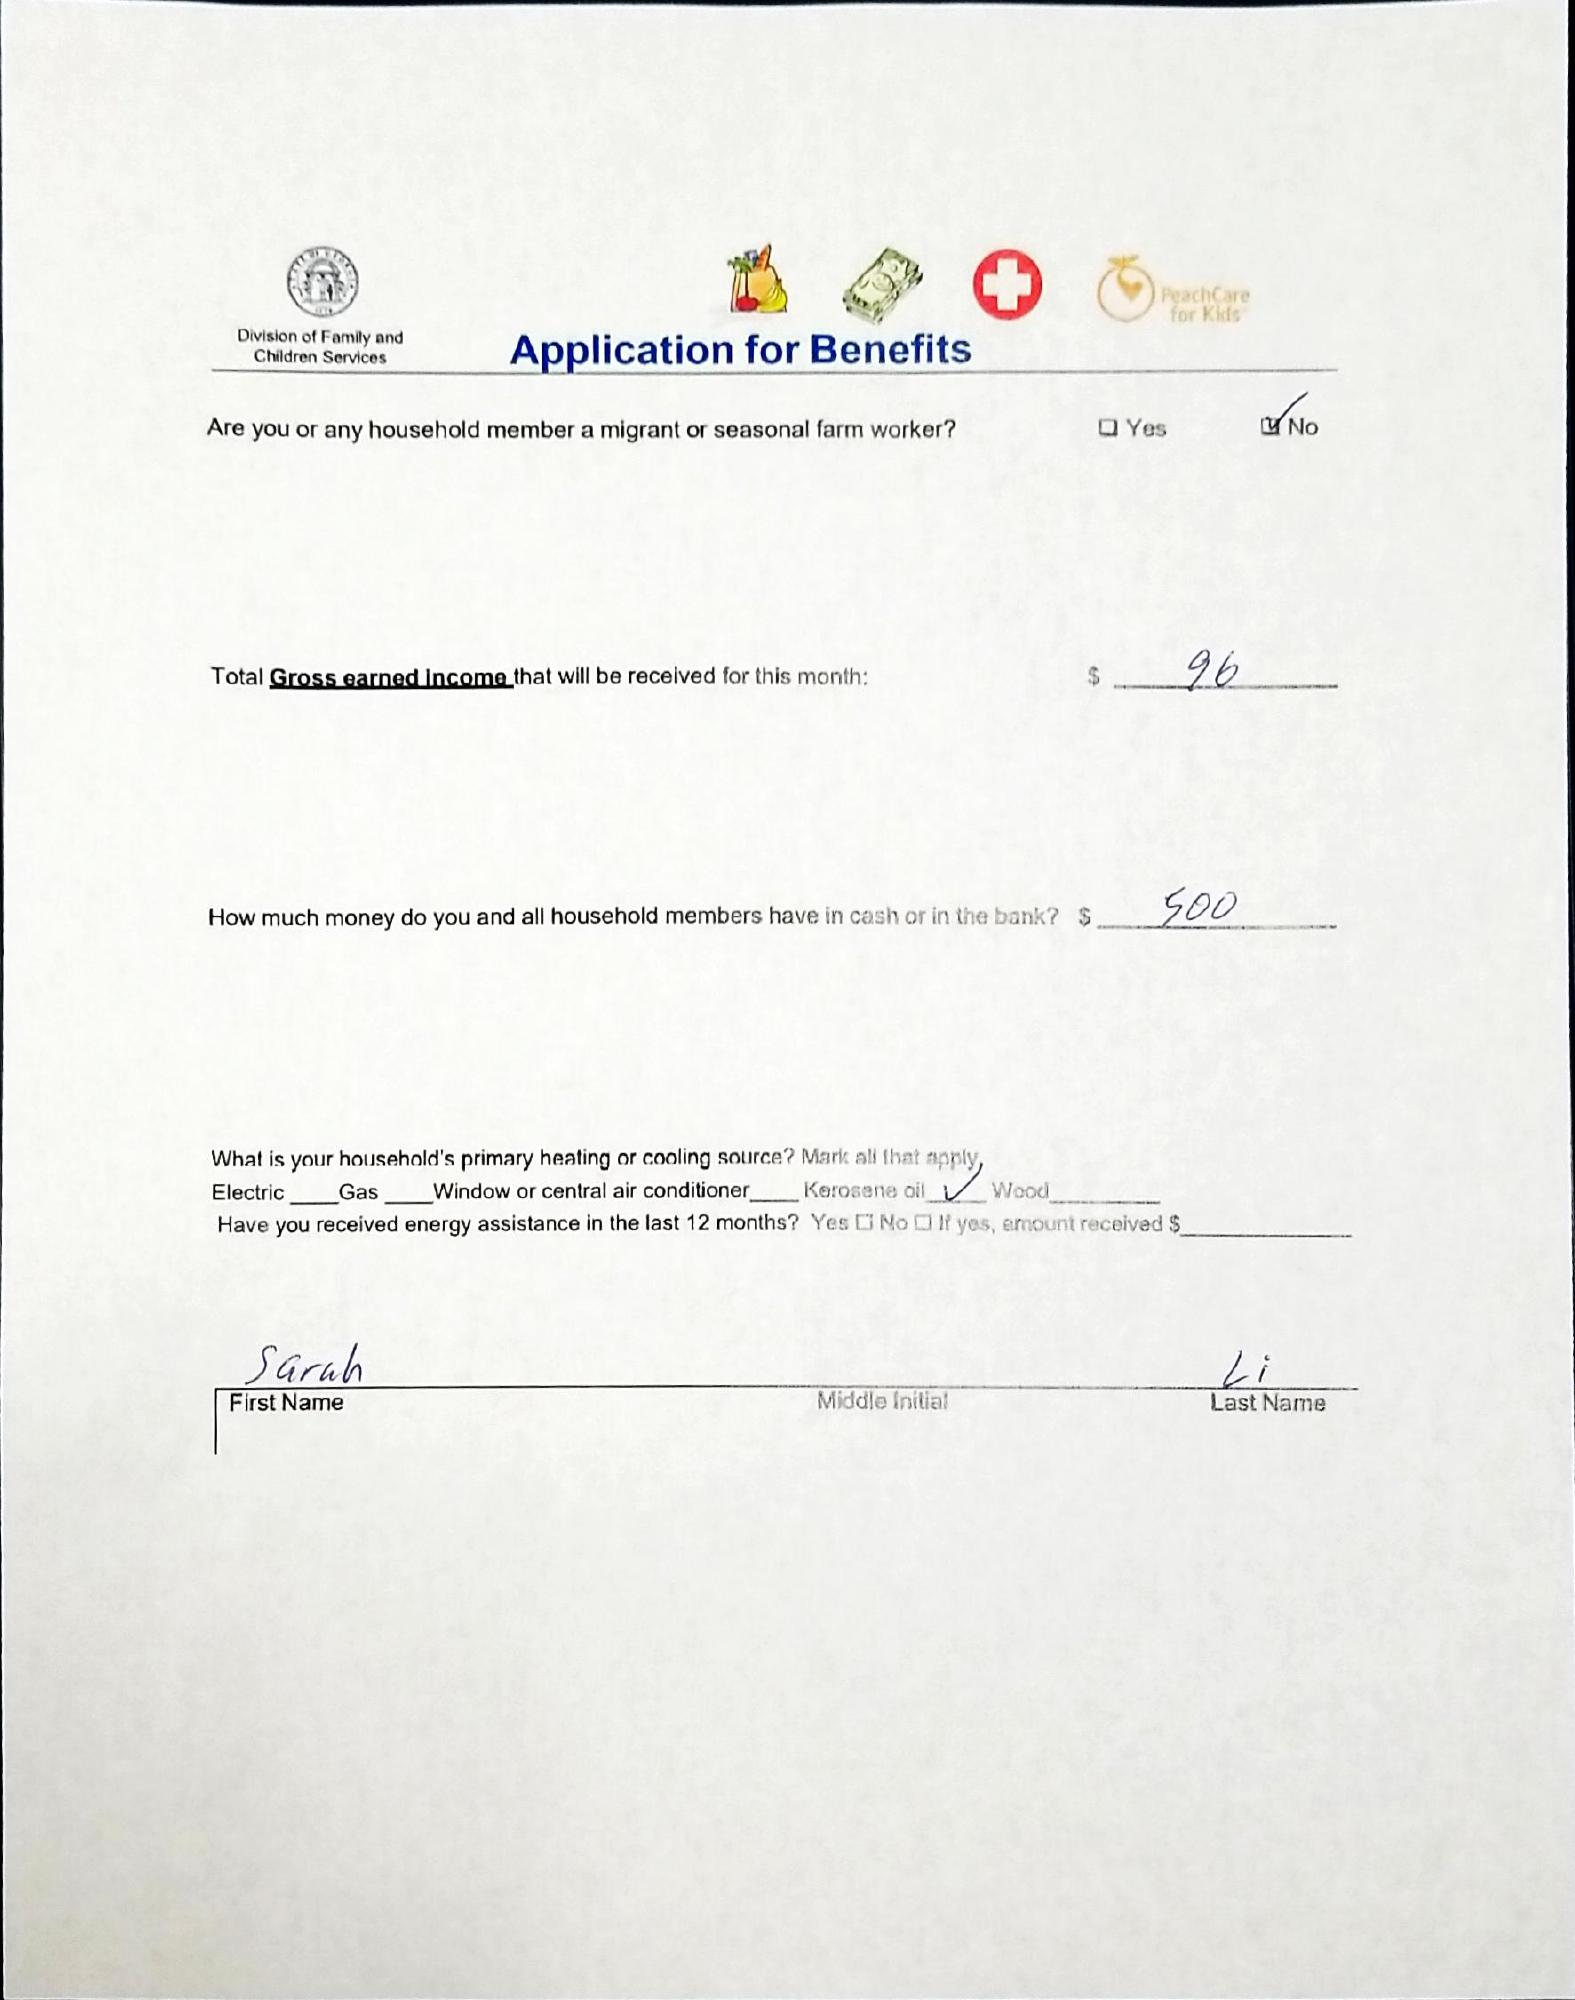 Division of Family and
Children Services
PeachCare
for Kids
Application for Benefits
Are you or any household member a migrant or seasonal farm worker? ☐ Yes ☑ No
Total Gross earned income that will be received for this month: $ 96
How much money do you and all household members have in cash or in the bank? $ 500
What is your household's primary heating or cooling source? Mark all that apply,
Electric ____Gas ____Window or central air conditioner____ Kerosene oil ✓ Wood________
Have you received energy assistance in the last 12 months? Yes ☐ No ☐ If yes, amount received $____________
Sarah Li
First Name Middle Initial Last Name